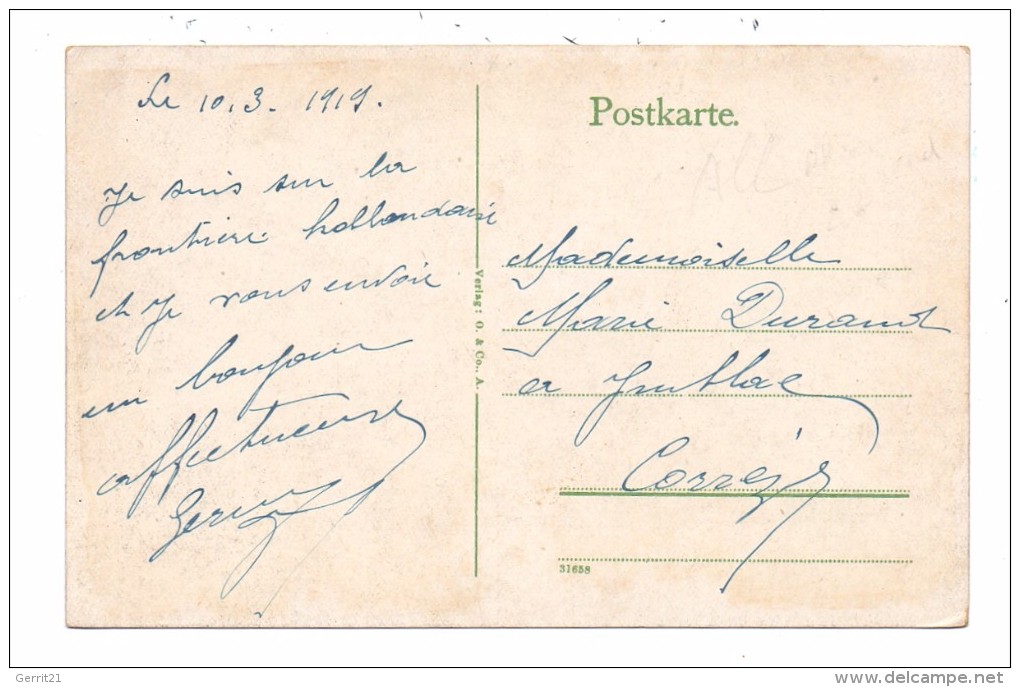 Le 10.3. 1919.
Je suis sur la
frontière hollandaise
et je vous envoie
un bonjour
affectueux
Postkarte.
Mademoiselle
Marie Durand
a
Corrèze
Verlag: O. & Co., A.
31658
Gerrit21
www.delcampe.net